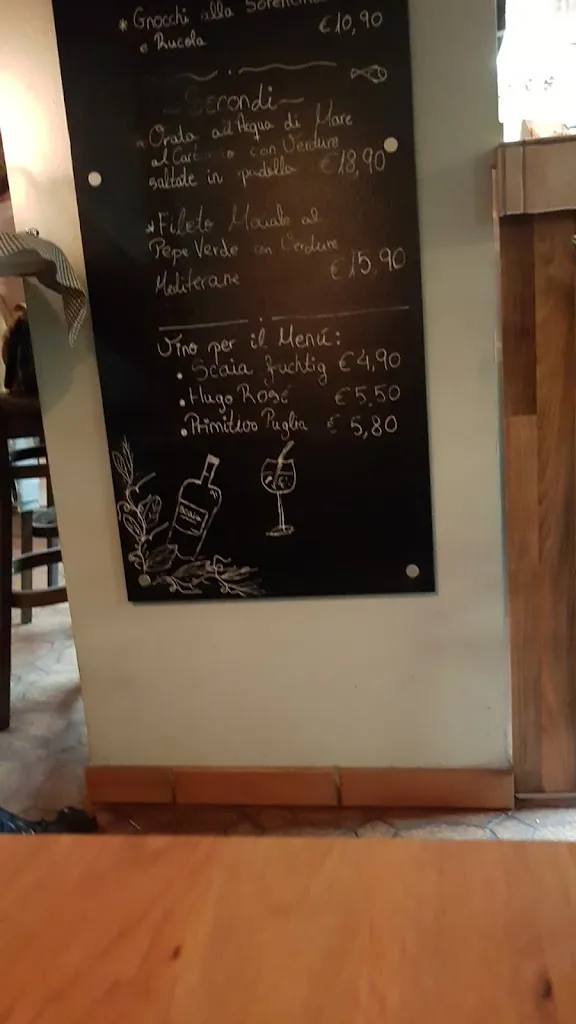 * Gnocchi alla Sorentina
e Rucola €10,90
Secondi
* Orata all'Acqua di Mare
al Cartoccio con Verdure
saltate in padella €18,90
* Fileto Maiale al
Pepe Verde con Verdure
Mediterane €15.90
Vino per il Menú:
• Scaia fruchtig €4,90
• Hugo Rosé €5.50
• Primitivo Puglia € 5,80
SCAIA